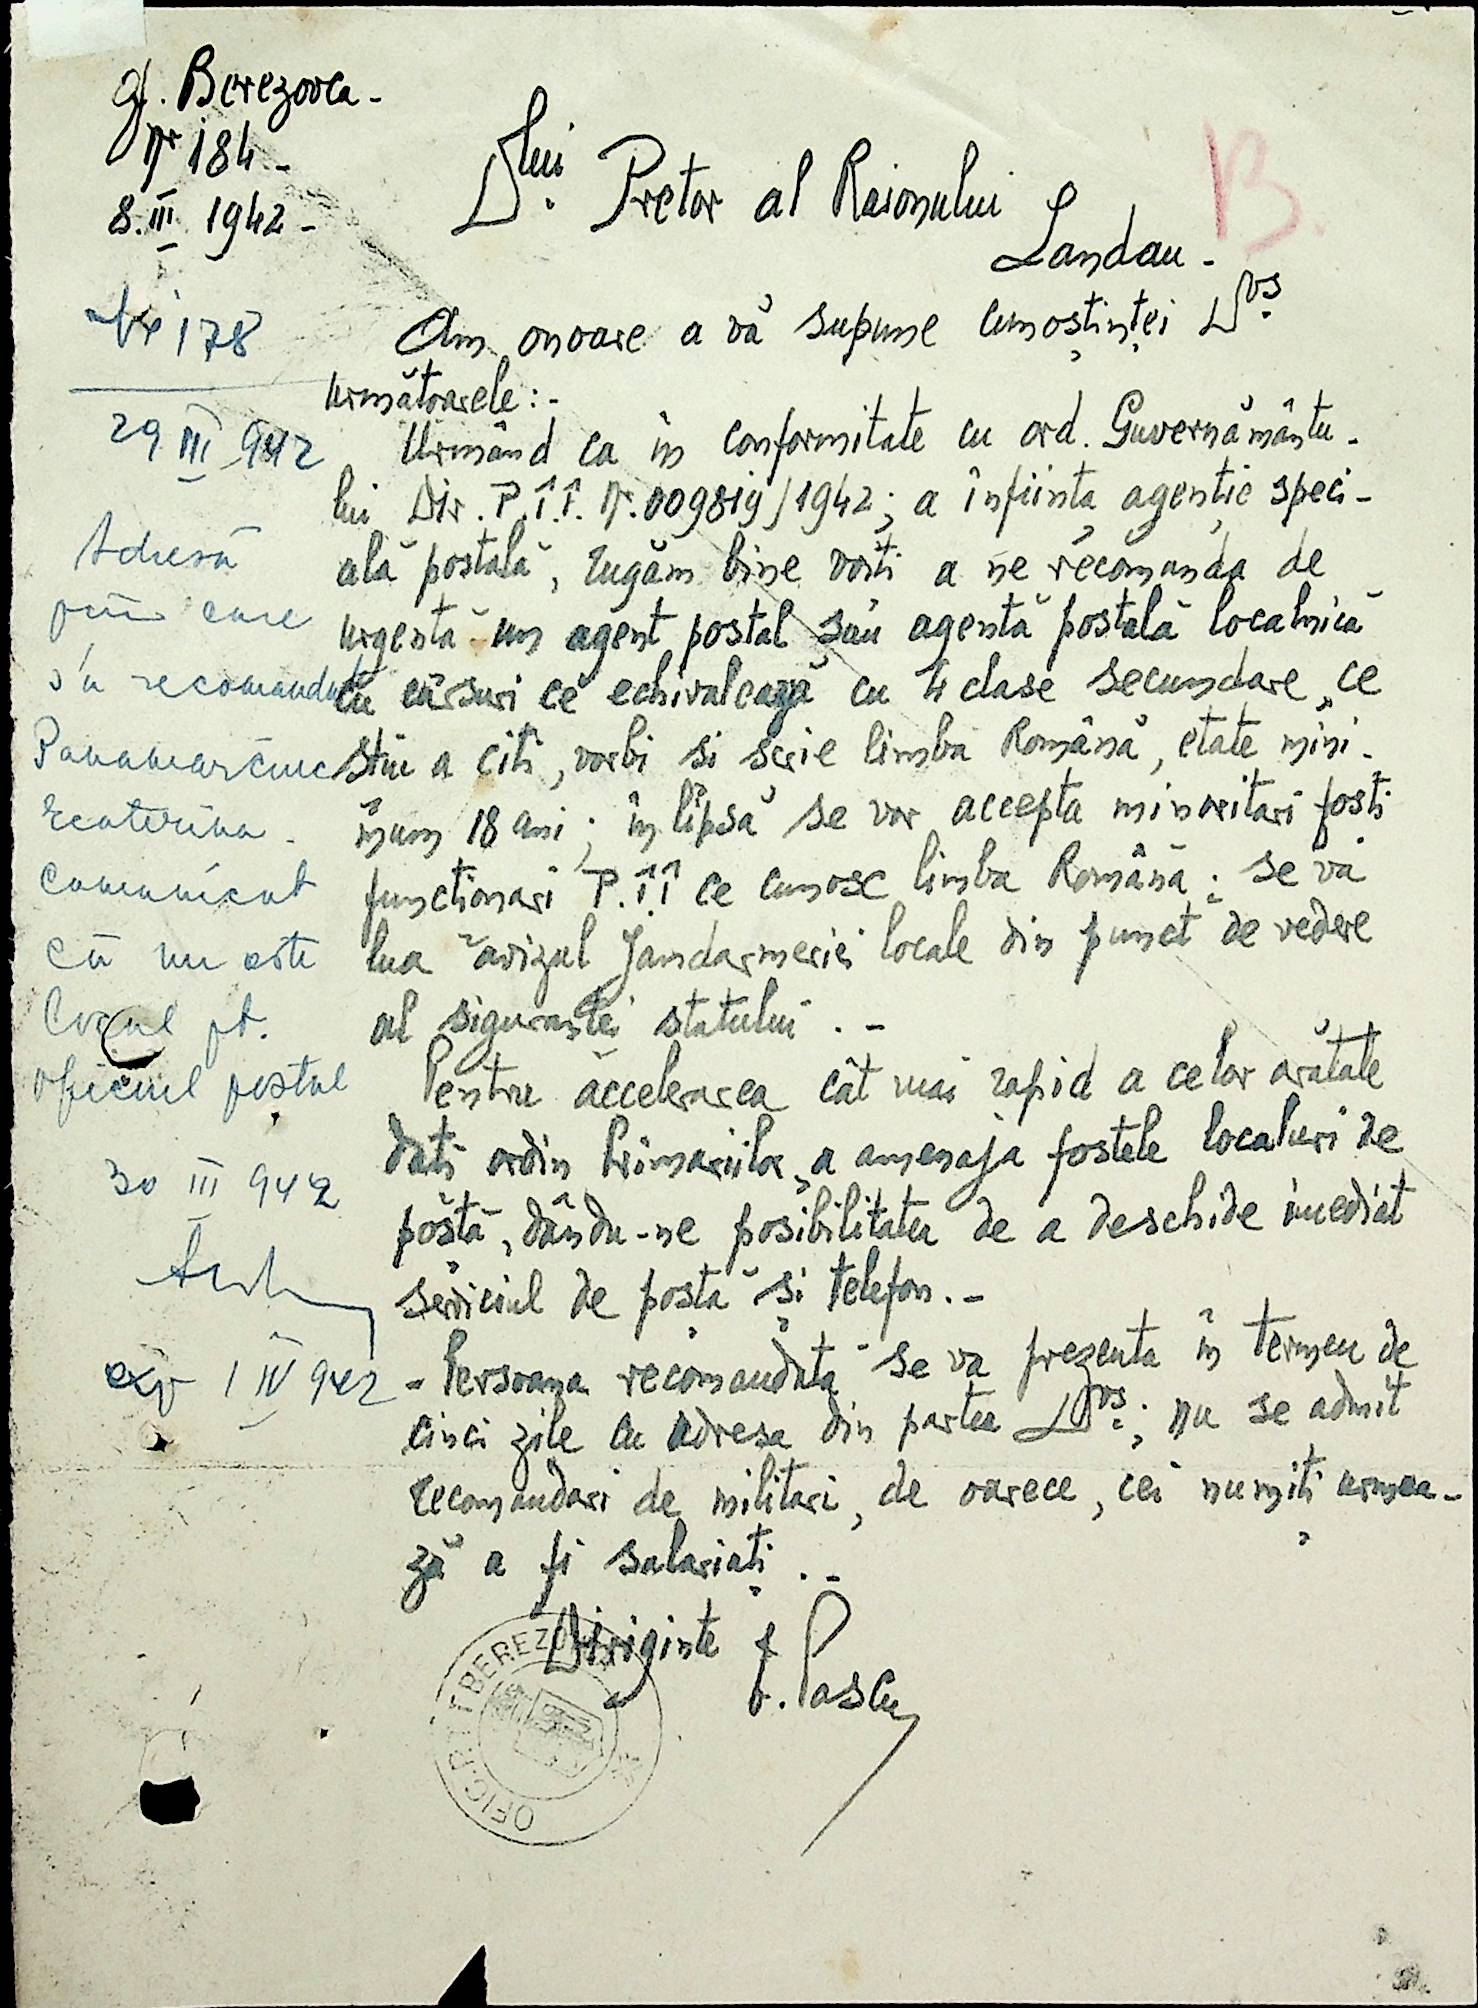 Of. Berezovca -
Nr 184 -
8.III 1942 -
Dlui Pretor al Raionului
Landau -
B.
Am onoare a vă supune cunoștinței Dvs.
următoarele :-
Urmând ca în conformitate cu ord. Guvernământu-
lui Dir. P.T.T. Nr. 009819/1942; a înființa agenție speci-
ală postală, rugăm bine voiti a ne recomanda de
urgentă un agent postal sau agentă postală localnică
cu cursuri ce echivalează cu 4 clase secundare, ce
știu a citi, vorbi si scrie limba Română, etate mini-
mum 18 ani; în lipsă se vor accepta minoritari fosti
functionari P.T.T ce cunosc limba Română; se va
lua avizul Jandarmeriei locale din punct de vedere
al siguranței statului . -
Pentru accelerarea cât mai rapid a celor arătate
dati ordin Primariilor, a amenaja fostele localuri de
poștă, dându-ne posibilitatea de a deschide imediat
serviciul de poștă și telefon. -
- Persoana recomandată se va prezenta în termen de
cinci zile cu adresa din partea Dvs.; nu se admit
recomandari de militari, de oarece, cei numiți urmea-
ză a fi salariați . -
Diriginte
F. Pascu
OFIC. P.T.T BEREZOVCA
Nr 178
29 III 942
Adresă
prin care
s'a recomandat
Panamarciuc
Ecaterina -
Comunicat
că nu este
Local pt.
oficiul postal
30 III 942
exp 1 IV 942